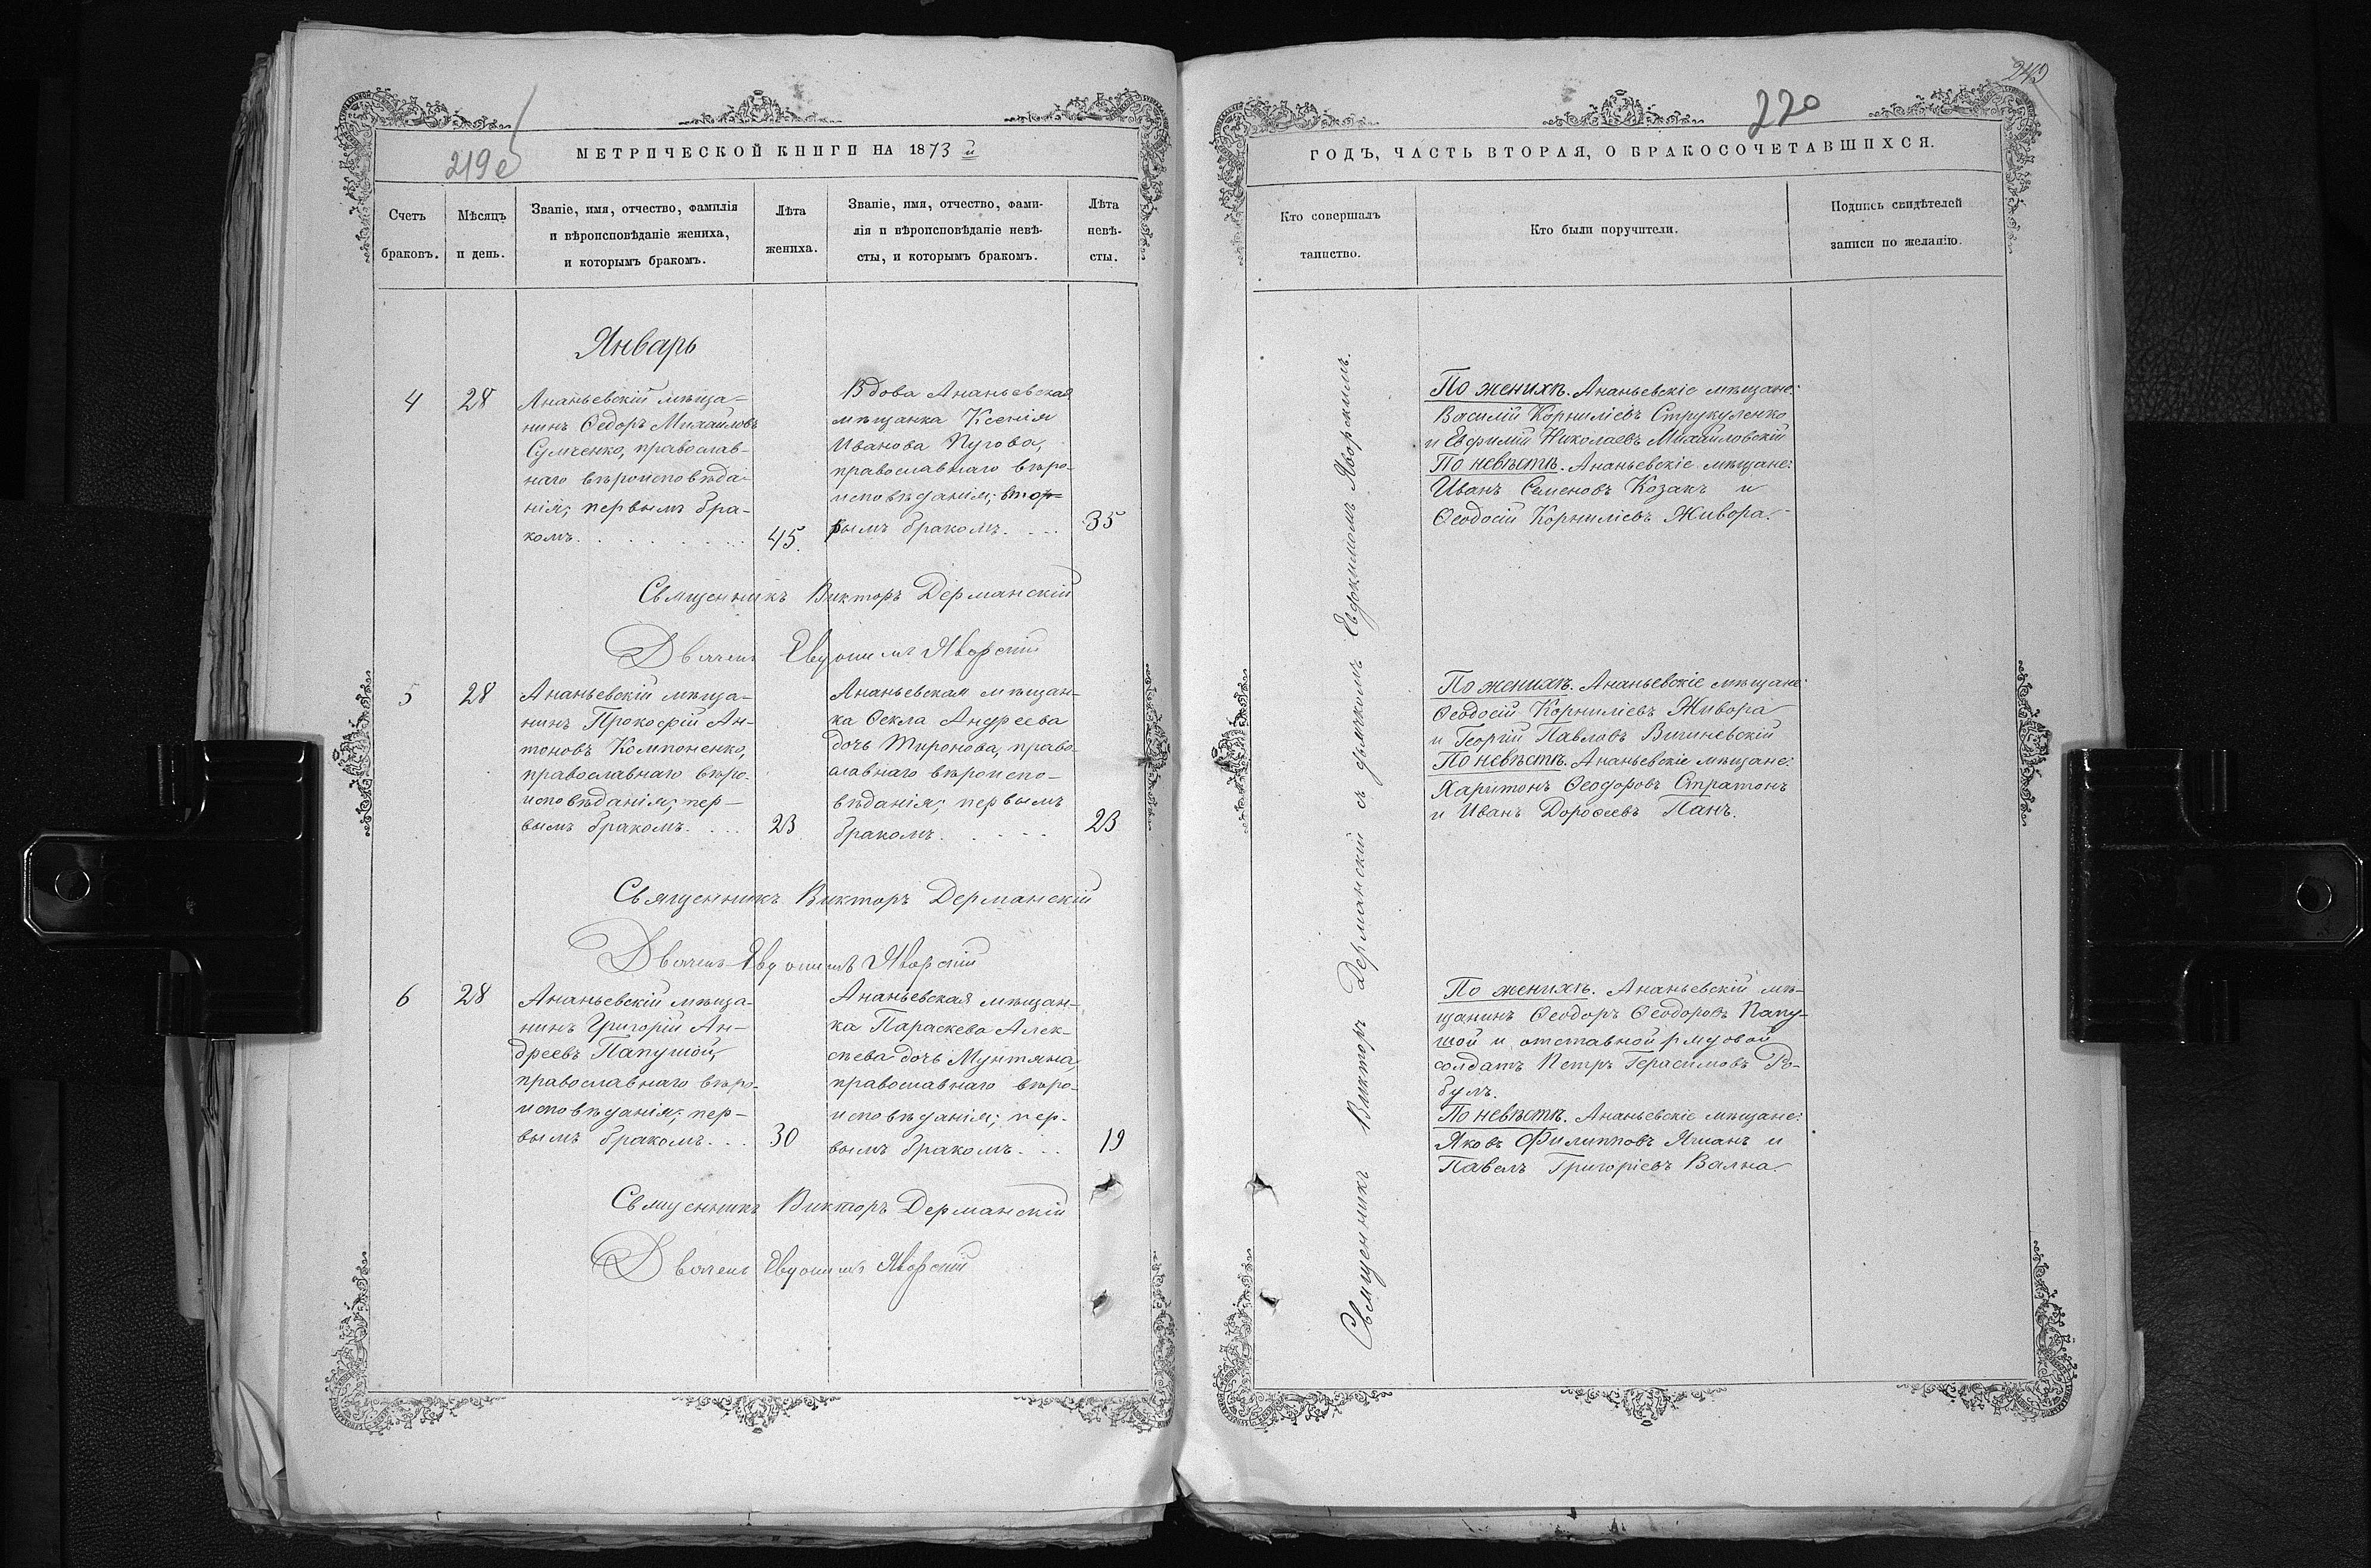 219е
МЕТРИЧЕСКОЙ КНИГИ НА 1873 й
Счетъ
браковъ.
Мѣсяцъ
и день.
Званіе, имя, отчество, фамилія
и вѣроисповѣданіе жениха,
и которымъ бракомъ.
Лѣта
жениха.
Званіе, имя, отчество, фами-
лія и вѣроисповѣданіе невѣ-
сты, и которымъ бракомъ.
Лѣта
невѣ-
сты.
Январь
4
28
Ананьевскій мѣща-
нинъ Ѳедоръ Михайловъ
Сумченко, православ-
наго вѣроисповѣда-
нія; первымъ бра-
комъ.
45.
Вдова Ананьевская
мѣщанка Ксенія
Иванова Пугова,
православнаго вѣро-
исповѣданія; втор-
ымъ бракомъ.
35
Священникъ Викторъ Дерманскій
Дьячекъ Евдокимъ Яворскій
5
28
Ананьевскій мѣща-
нинъ Прокофій Ан-
тоновъ Компоненко,
православнаго вѣро-
исповѣданія; пер-
вымъ бракомъ.
23
Ананьевская мѣщан-
ка Ѳекла Андреева
дочь Миронова, право-
славнаго вѣроиспо-
вѣданія; первымъ
бракомъ.
23
Священникъ Викторъ Дерманскій
Дьячекъ Евдокимъ Яворскій
6
28
Ананьевскій мѣща-
нинъ Григорій Ан-
дреевъ Папушой,
православнаго вѣро-
исповѣданія; пер-
вымъ бракомъ.
30
Ананьевская мѣщан-
ка Параскева Алек-
сѣева дочь Мунтяна,
православнаго вѣро-
исповѣданія; пер-
вымъ бракомъ.
19
Священникъ Викторъ Дерманскій
Дьячекъ Евдокимъ Яворскій
220
ГОДЪ, ЧАСТЬ ВТОРАЯ, О БРАКОСОЧЕТАВШИХСЯ.
Кто совершалъ
таинство.
Кто были поручители.
Подпись свидѣтелей
записи по желанію.
Священникъ Викторъ Дерманскій съ дьячкомъ Евдокимомъ Яворскимъ.
По женихѣ. Ананьевскіе мѣщане:
Василій Корниліевъ Струкуленко
и Евфимій Николаевъ Михайловскій
По невѣстѣ. Ананьевскіе мѣщане:
Иванъ Семеновъ Козакъ и
Ѳеодосій Корниліевъ Живора.
По женихѣ. Ананьевскіе мѣщане:
Ѳеодосій Корниліевъ Живора
и Георгій Павловъ Вишневскій
По невѣстѣ. Ананьевскіе мѣщане:
Харитонъ Ѳеодоровъ Стратонъ
и Иванъ Дорофеевъ Панъ.
По женихѣ. Ананьевскій мѣ-
щанинъ Ѳеодоръ Ѳеодоровъ Папу-
шой и отставной рядовой
солдатъ Петръ Герасимовъ Ро-
булъ.
По невѣстѣ. Ананьевскіе мѣщане:
Яковъ Филипповъ Яманъ и
Павелъ Григоріевъ Валка.